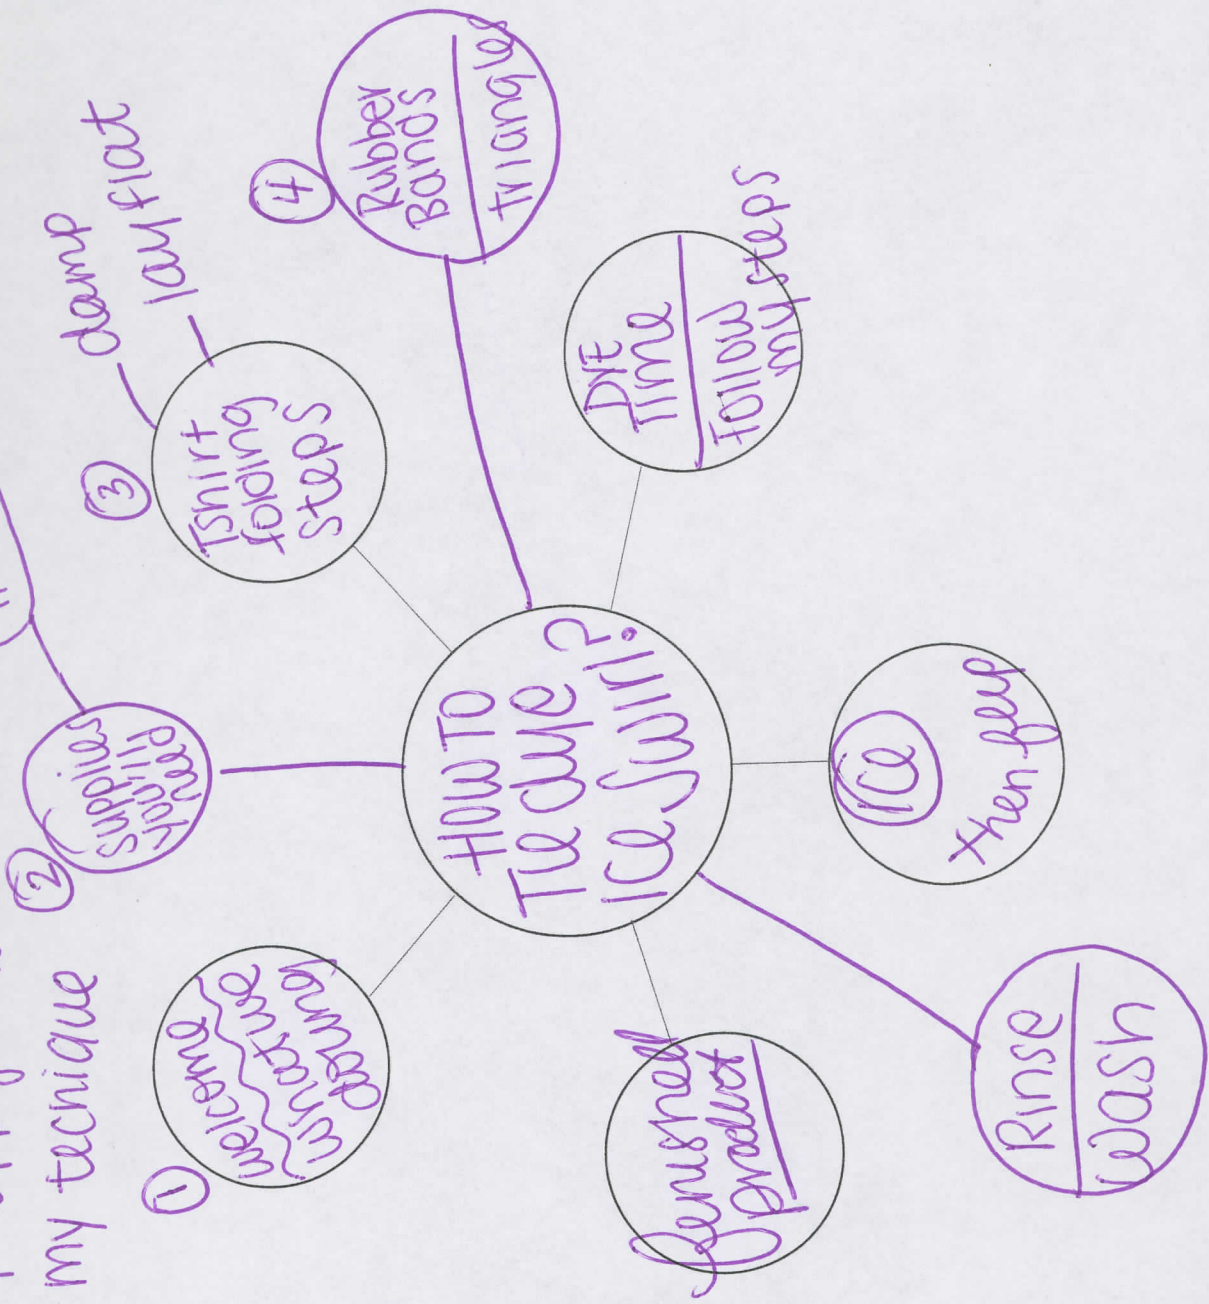 my tecnique
1
welcome
what we
doung
2
supplies
you'll
need
3
Tshirt
folding
steps
damp
lay flat
4
Rubber
Bands
Triangles
DYE
TIME
Follow
my steps
HOW TO
Tie dye
Ice Swirl?
ICE
then flip
Rinse
Wash
fenushed
product